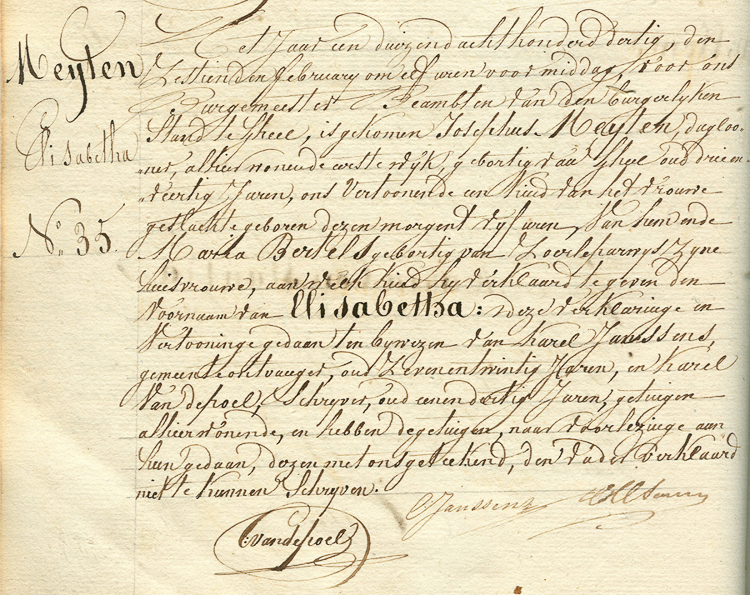 Meyten
Elisabetha
N.o 35.
Het Jaar een duizend acht honderd dertig, den
Zestienden february om elf uren voor middag, voor ons
Burgemeester Beambten van den burgerlyken
Stand te Gheel, is gekomen Josephus Meyten, dagloo-
ner, alhier wonende eerste wyk, gebortig van Gheel oud drie en
veertig Jaren, ons vertoonende een Kind van het vrouwe
geslacht geboren dezen morgent vyf uren, van hem ende
Maria Bertels gebortig van Zoerleparwys Zyne
huisvrouwe, aan welk kind hy verklaard te geven den
voornaam van Elisabetha: deze verklaringe en
vertooninge gedaan ten bywezen van Karel Janssens,
gemeente ontvanger, oud Zevenentwintig Jaren, en Karel
Vandepoel, Schryver, oud eenendertig Jaren, getuigen
alhier wonende, en hebben de getuigen, naar voorlezinge aan
hun gedaan, dezen met ons geteekend, den vader verklaard
niet te kunnen Schryven.
Janssens
Vandepoel